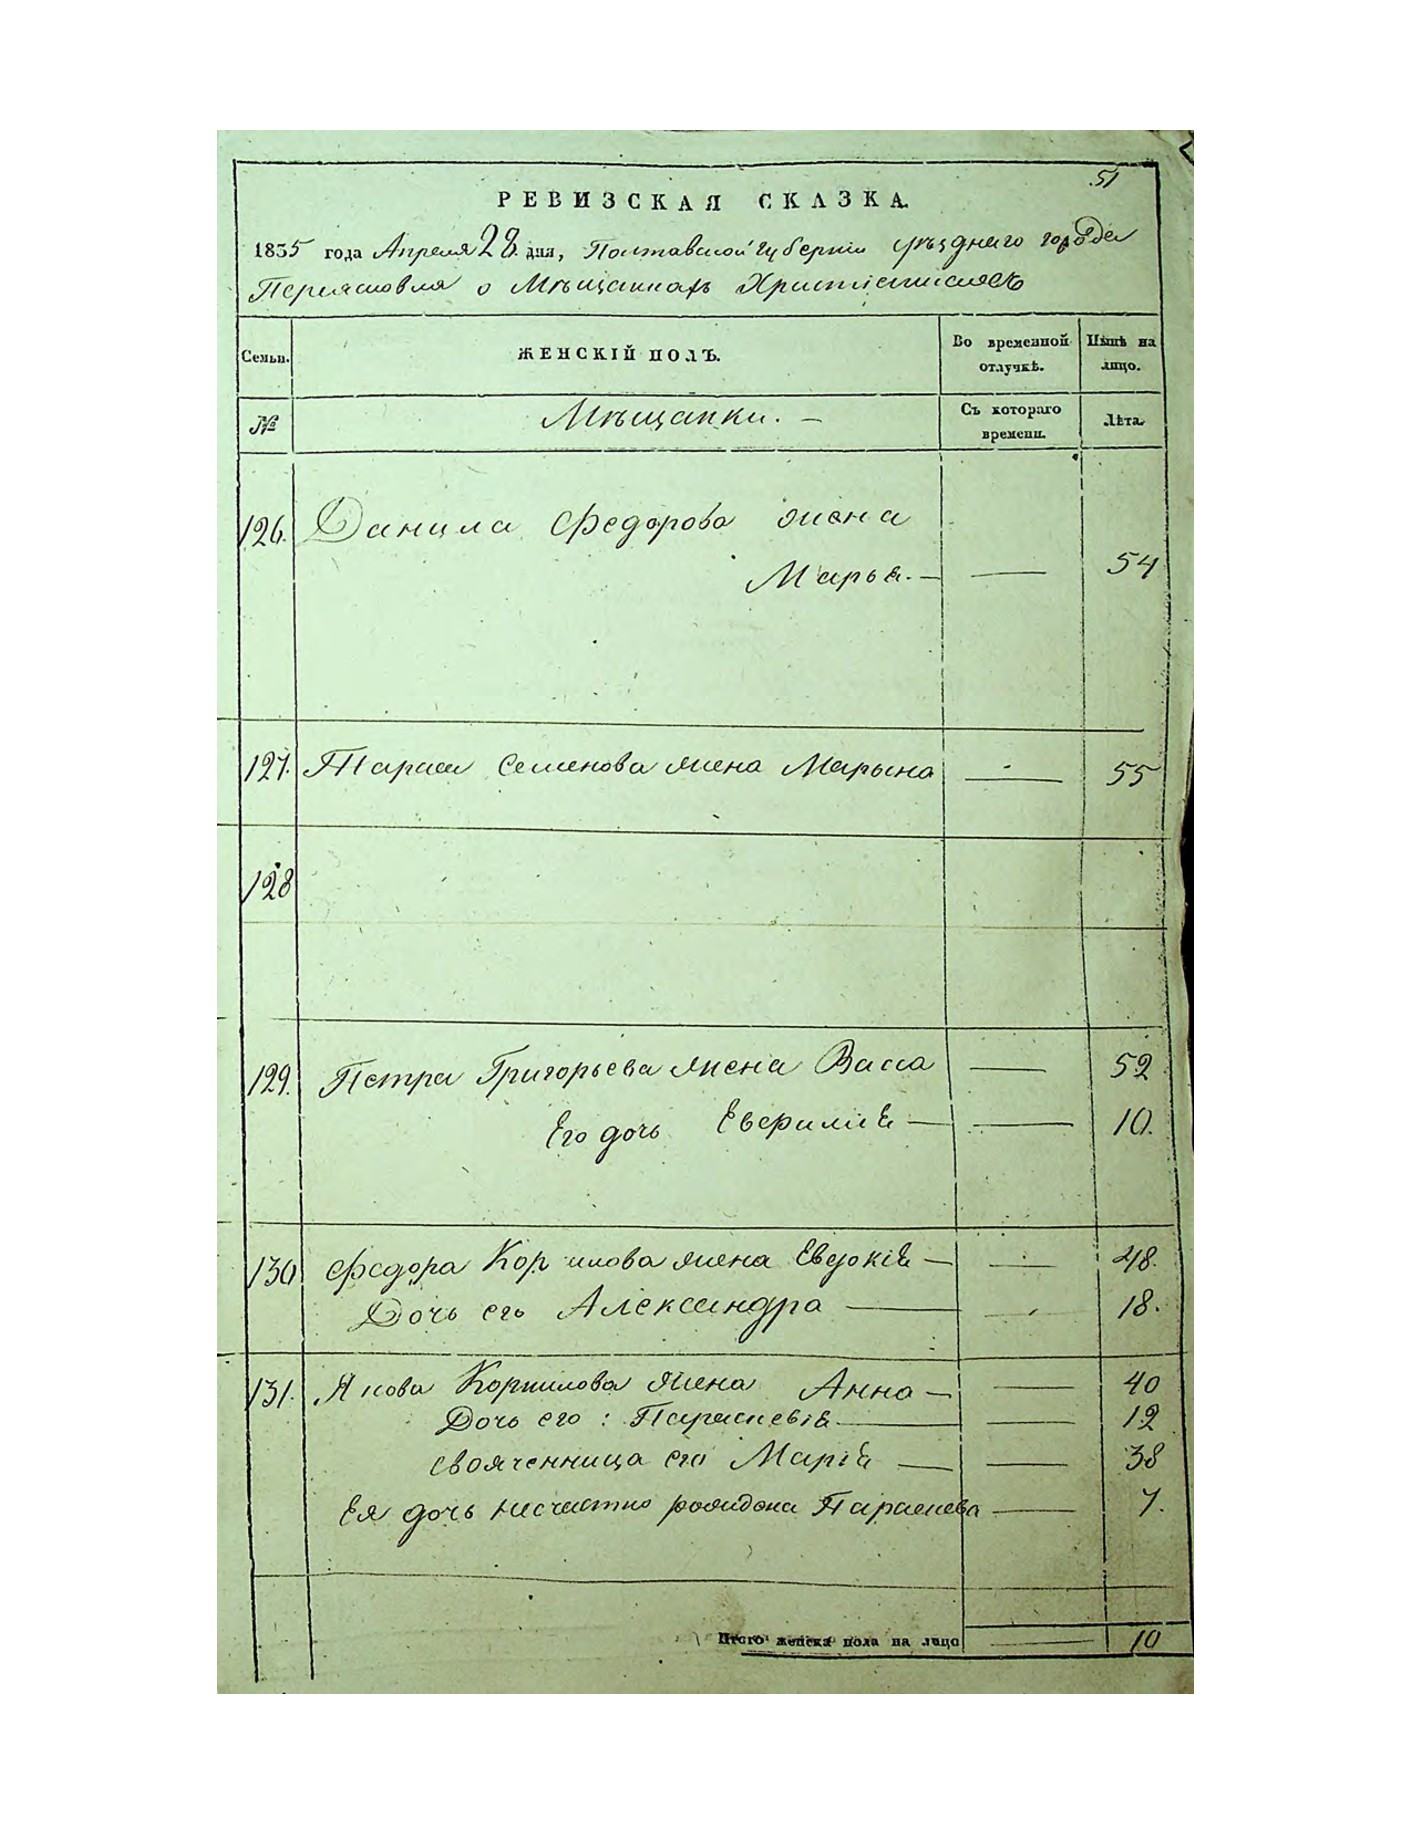 51
РЕВИЗСКАЯ СКАЗКА.
1835 года Апреля 28 дня, Полтавской губернiи уѣзднаго города
Переяславля о Мѣщанкахъ Христiянскихъ
Семьи. ЖЕНСКIЙ ПОЛЪ. Во временной отлучкѣ. Нынѣ на лицо.
№ Мѣщанки. — Съ котораго времени. Лѣта.
126. Данила Федорова жена
Марья. — — 54
127. Тараса Семенова жена Марьяна — 55
128
129. Петра Григорьева жена Васса — 52
Его дочь Евфимiя — — 10.
130 Федора Корнилова жена Евдокiя — — 48.
Дочь его Александра — — 18.
131. Якова Корнилова жена Анна — — 40
Дочь его: Параскевiя — — 12
свояченница его Марiя — — 38
Ея дочь несчастно рожидена Параскева — 7.
Итого женска пола на лицо — 10